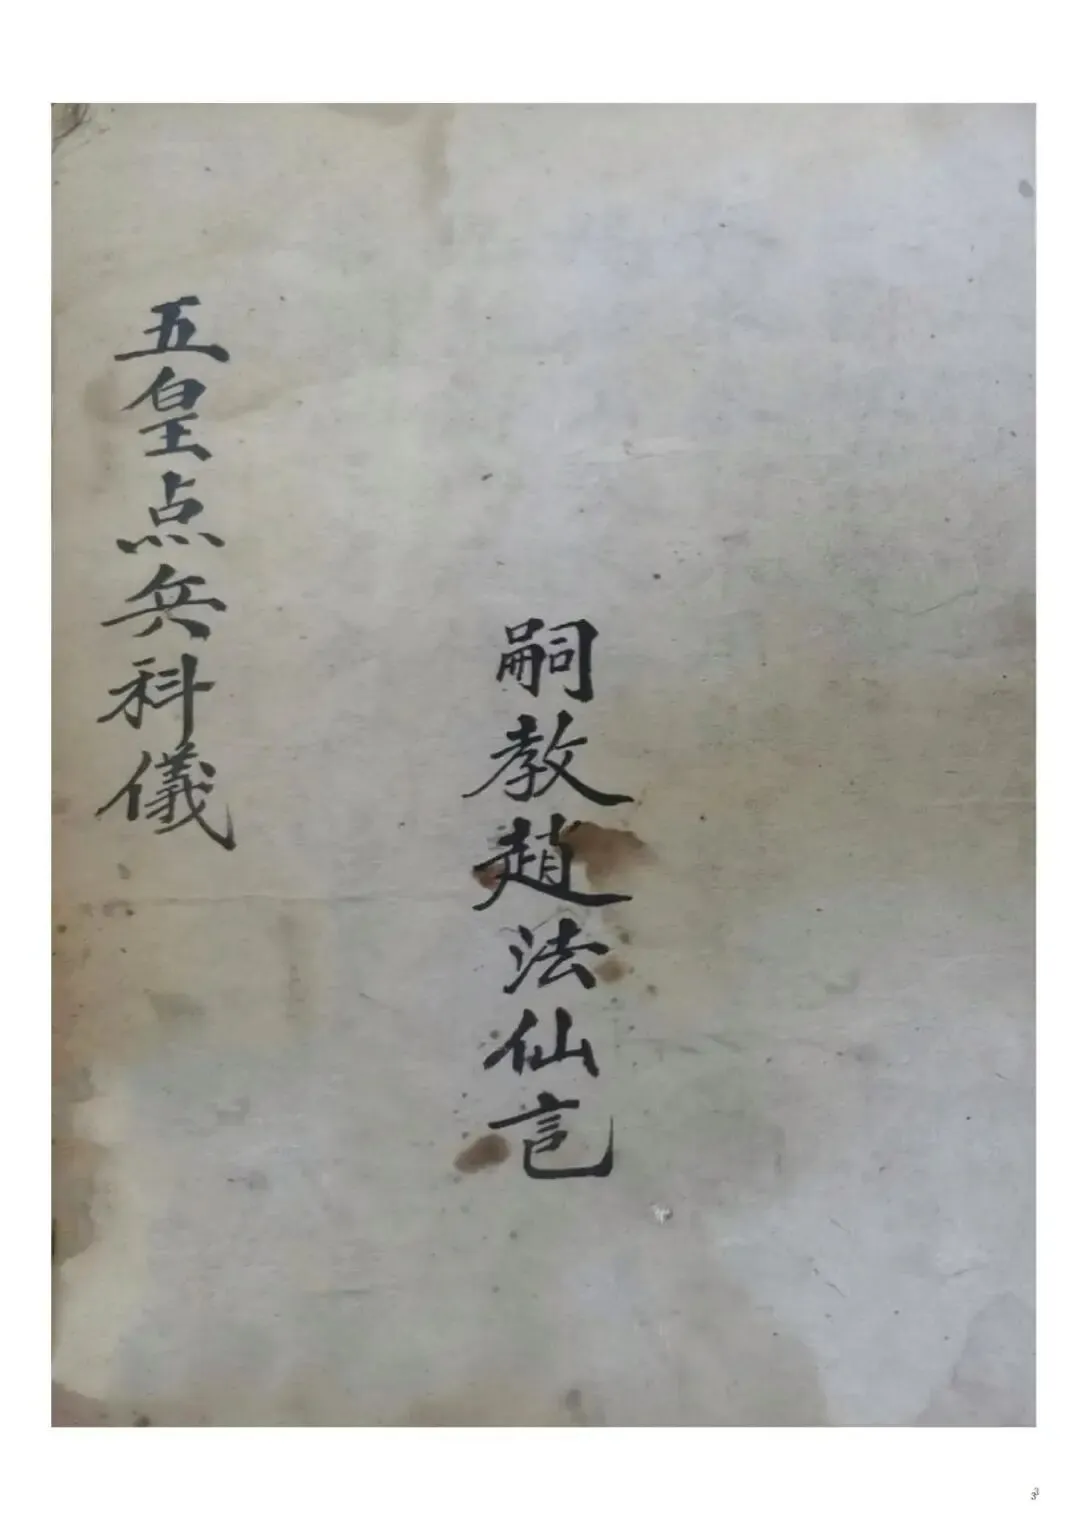 嗣教趙法仙記
五皇点兵科儀
3